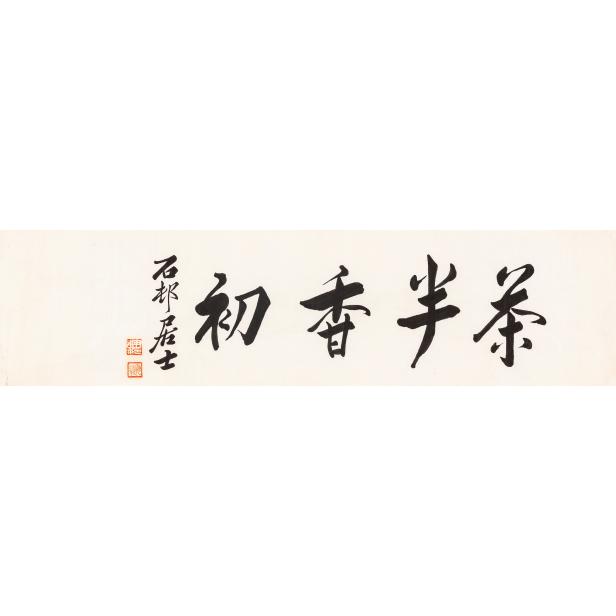 茶半香初
石邨居士